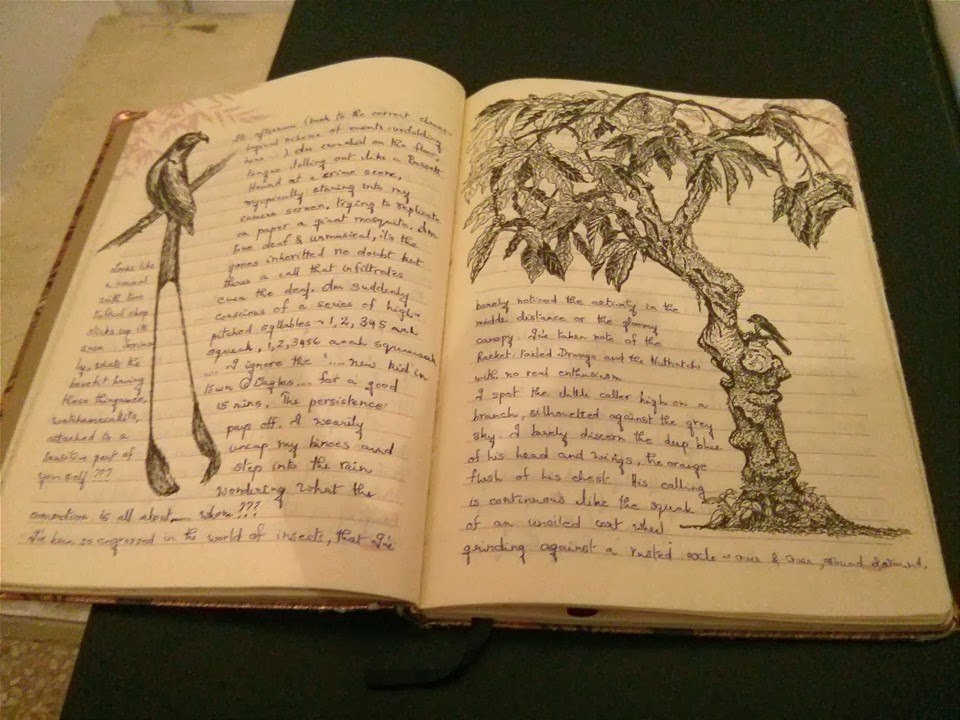 afternoon (back to the correct chrono-
logical scheme of events unfolding
here...) I'm crouched on the floor,
tongue lolling out like a Bassett
Hound at a crime scene,
myopically staring into my
camera screen, trying to replicate
on paper a giant mosquito. I'm
tone deaf & unmusical, it's the
genes inherited no doubt but
there's a call that infiltrates
even the deaf. I'm suddenly
conscious of a series of high-
pitched syllables - 1, 2, 345
squeak, 1, 2, 3456
... I ignore the '.... new kid in
town @ Eagles... for a good
15 mins. The persistence
pays off. I wearily
uncap my binocs and
step into the rain
wondering what the
commotion is all about..... whom???
I've been so engrossed in the world of insects, that I've
looks like
a comet
with two
tailed
up its
attached to a
part of
yourself ???
barely noticed the activity in the
middle distance or the gloomy
canopy. I've taken note of the
Racket-tailed Drongo and the Nuthatch
with no real enthusiasm
I spot the little caller high on a
branch, silhouetted against the grey
sky. I barely discern the deep blue
of his head and wings, the orange
flush of his chest. His calling
is continuous like the squeak
of an unoiled cart wheel
grinding against a rusted axle - over & over, around & around.